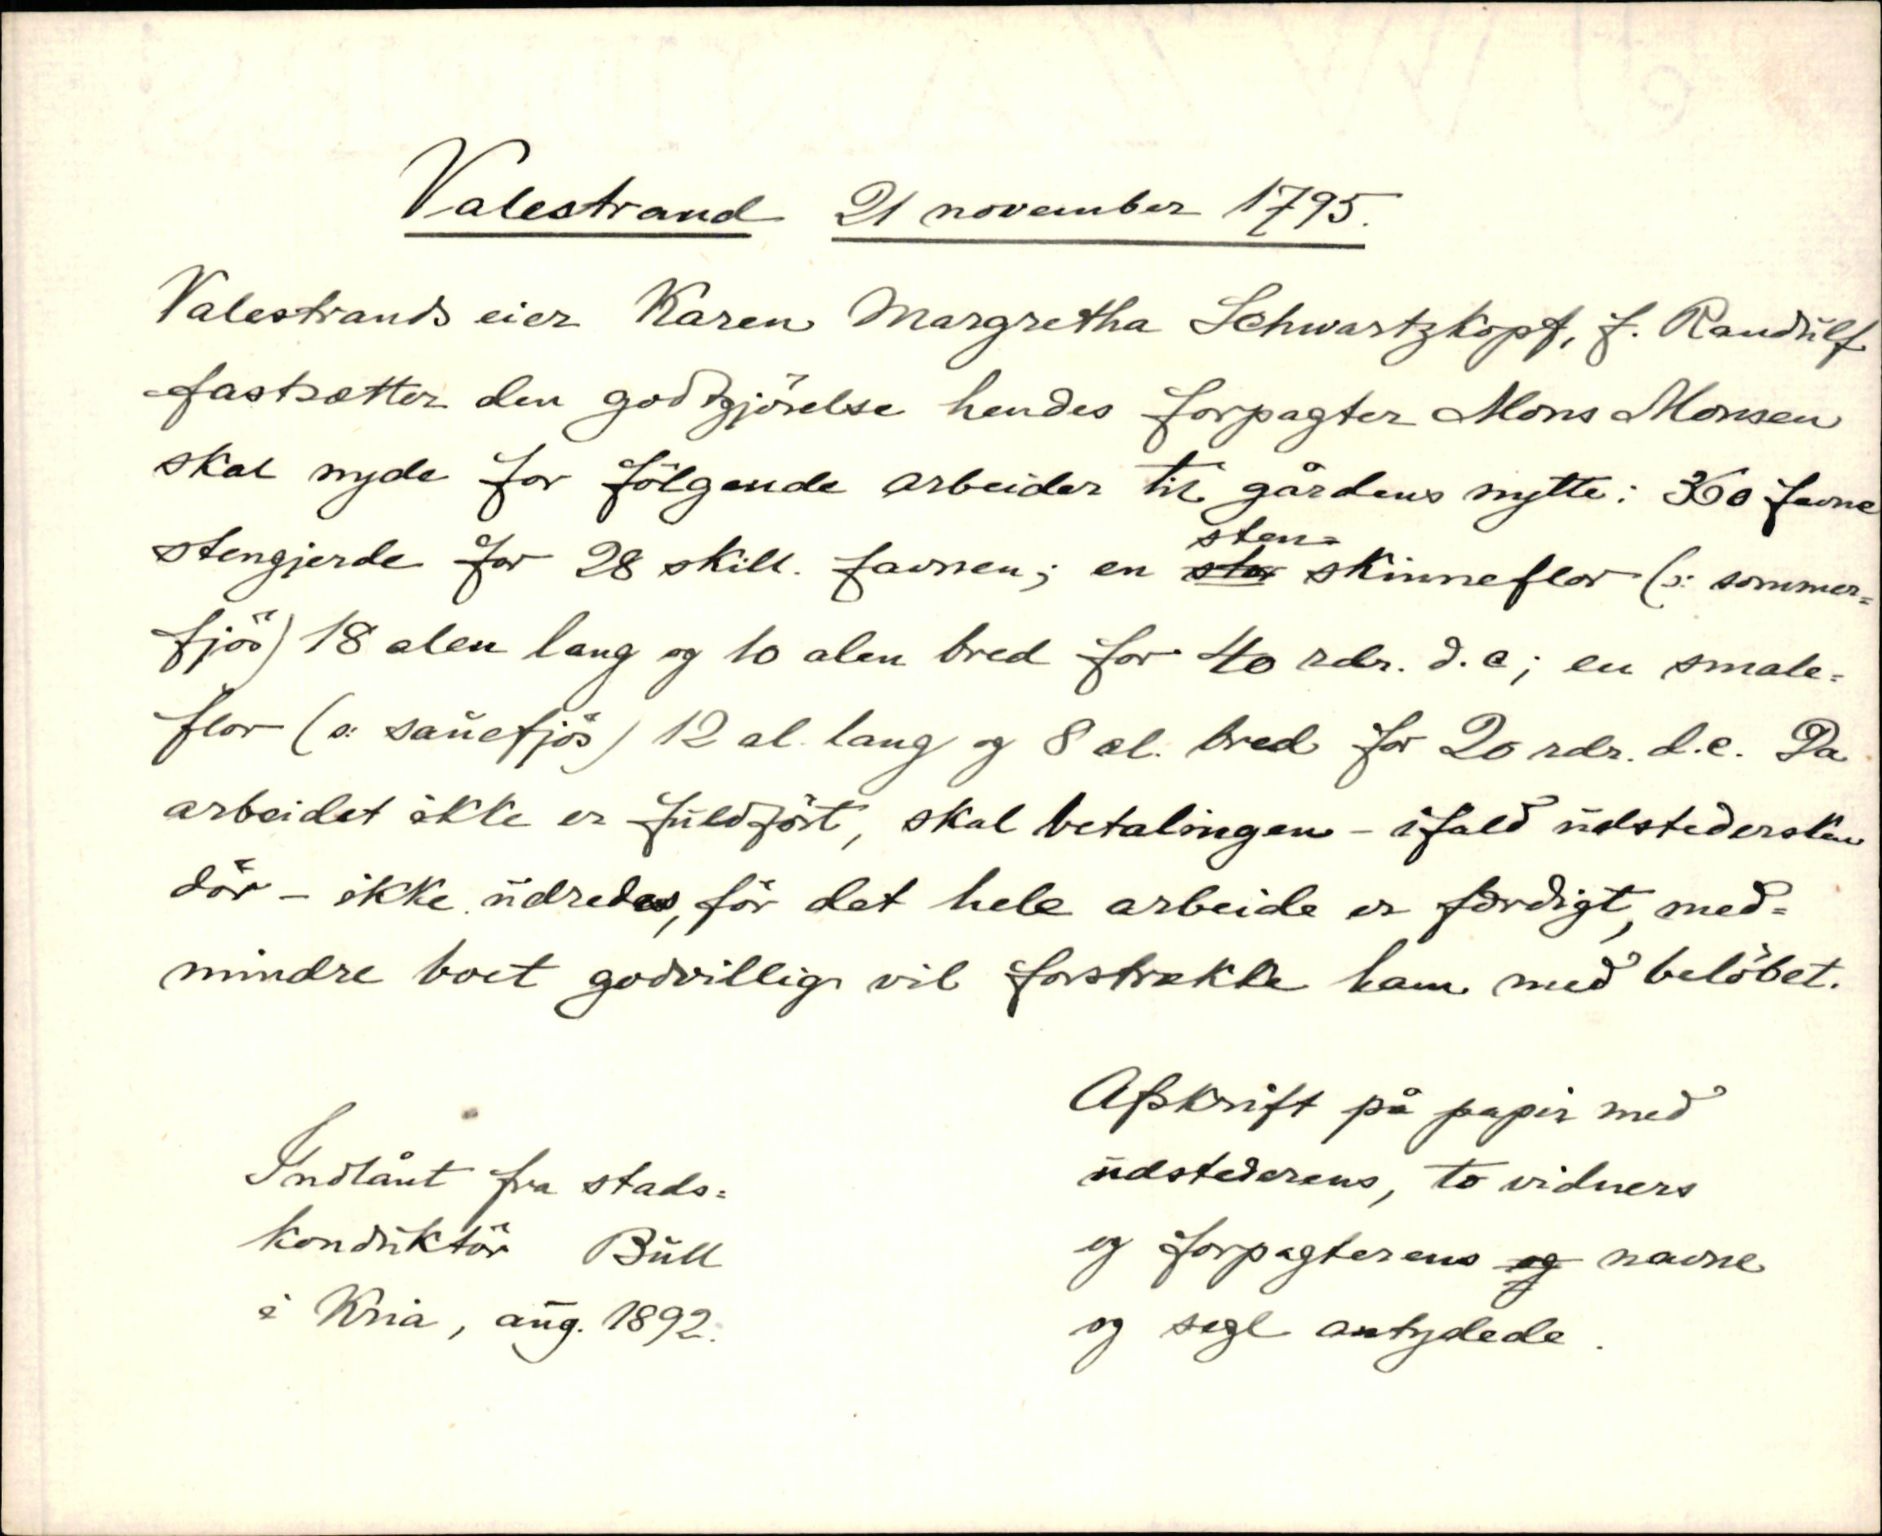 Valestrand 21 november 1795.
Valestrands eier Karen Margretha Schwartzkopf, f. Randulf
fastsætter den godtgjörelse hendes forpagter Mons Monsen
skal nyde for fölgende arbeider til gårdens nytte: 360 favne
stengjerde for 28 skill. favnen; en stor sten= skinneflor (ɔ: sommer=
fjös) 18 alen lang og 10 alen bred for 40 rdr. d.c; en smale=
flor (ɔ: sauefjös) 12 al. lang og 8 al. bred for 20 rdr. d.c. Da
arbeidet ikke er fuldfört, skal betalingen - ifald udstedersken
dör - ikke udredes, för det hele arbeide er færdigt, med=
mindre boet godvillig vil forstrække ham med belöbet.
Indlånt fra stads=
konduktör Bull
i Kria, aug. 1892.
Afskrift på papir med
udstederens, to vidners
og forpagterens og navne
og segl antydede.